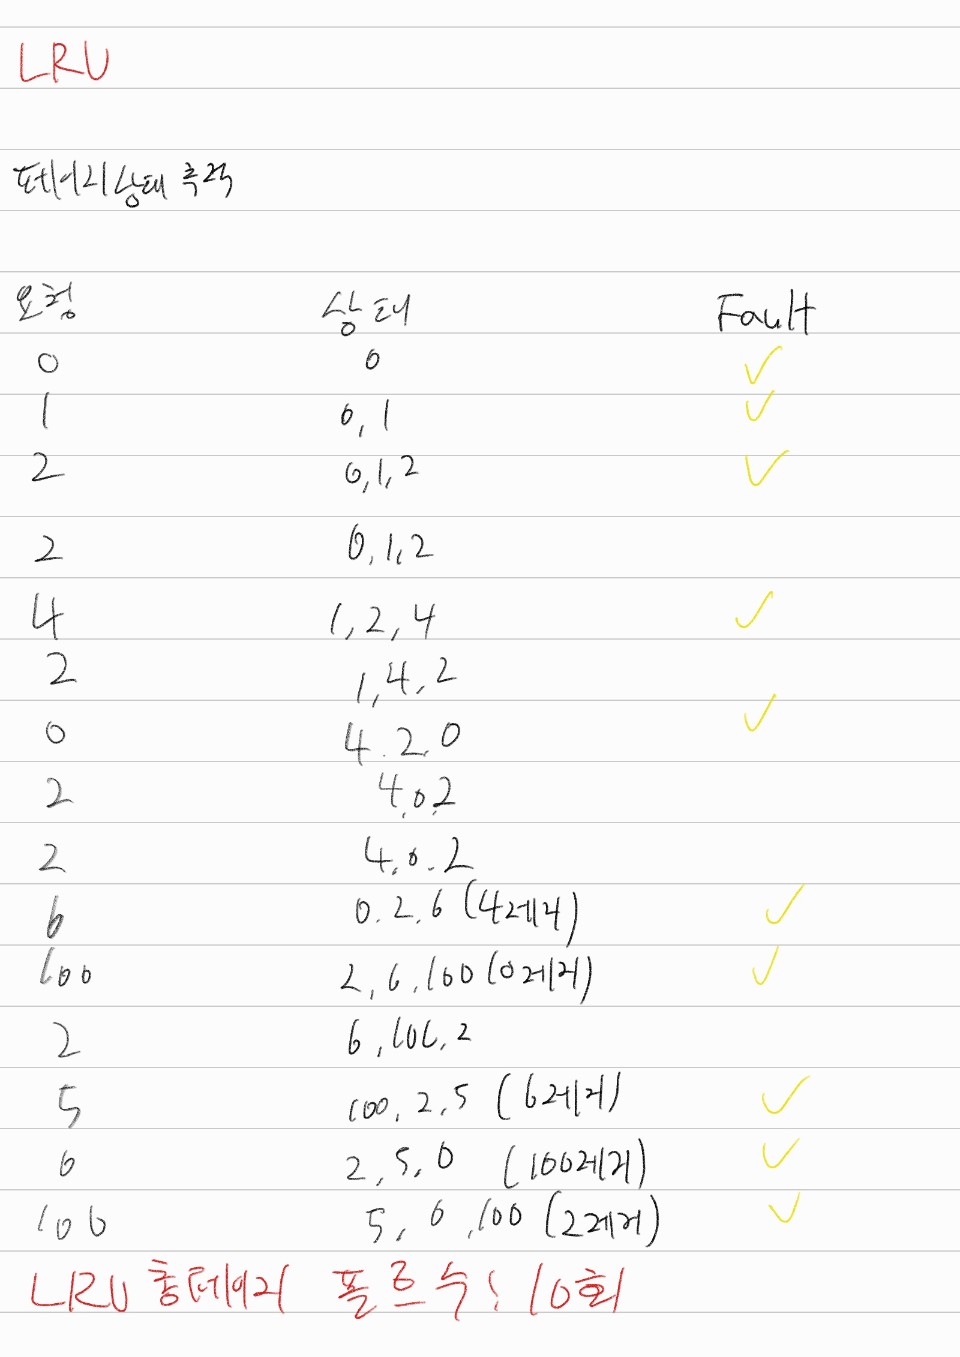 LRU
페이지상태 추적
요청 상태 Fault
0 0 ✓
1 0,1 ✓
2 0,1,2 ✓
2 0,1,2
4 1,2,4 ✓
2 1,4,2
0 4.2.0 ✓
2 4,0,2
2 4,0.2
6 0.2.6 (4제거) ✓
100 2,6,100 (0제거) ✓
2 6,100,2
5 100,2,5 (6제거) ✓
0 2,5,0 (100제거) ✓
100 5,0,100 (2제거) ✓
LRU 총페이지 폴트수: 10회